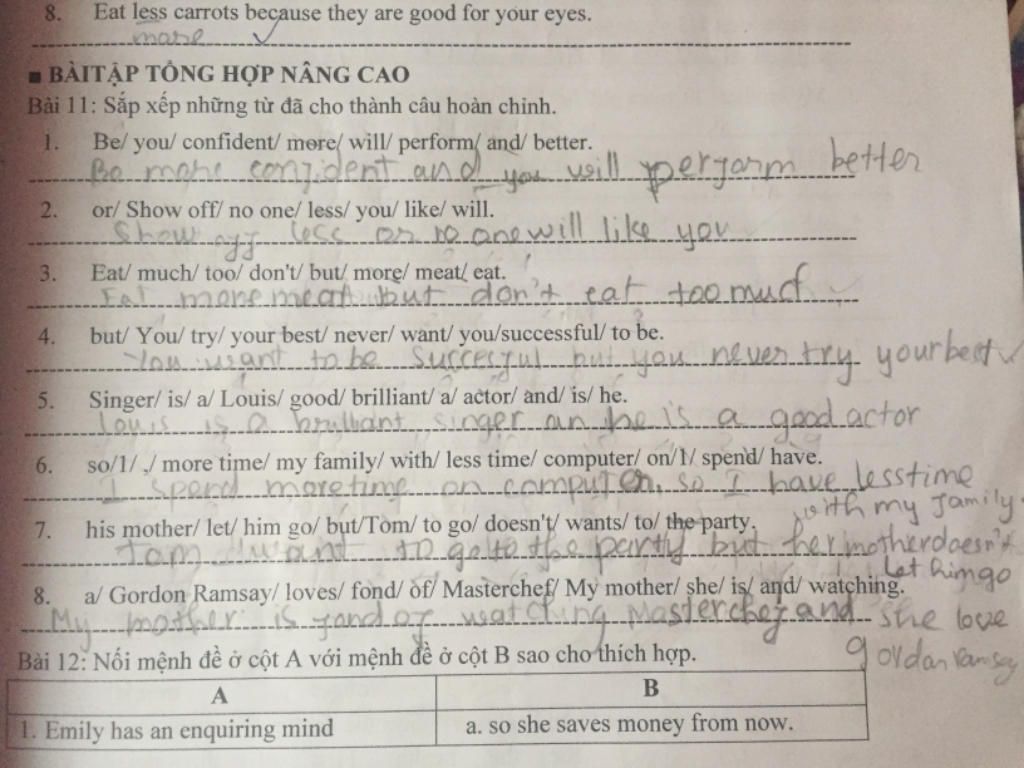 8. Eat less carrots because they are good for your eyes.
more
■ BÀI TẬP TỔNG HỢP NÂNG CAO
Bài 11: Sắp xếp những từ đã cho thành câu hoàn chỉnh.
1. Be/ you/ confident/ more/ will/ perform/ and/ better.
Be more confident and you will perform better
2. or/ Show off/ no one/ less/ you/ like/ will.
Show off less or no one will like you
3. Eat/ much/ too/ don't/ but/ more/ meat/ eat.
Eat more meat but don't eat too much
4. but/ You/ try/ your best/ never/ want/ you/successful/ to be.
You want to be succesful but you never try your best
5. Singer/ is/ a/ Louis/ good/ brilliant/ a/ actor/ and/ is/ he.
Louis is a brilliant singer an he is a good actor
6. so/1/ ,/ more time/ my family/ with/ less time/ computer/ on/1/ spend/ have.
I spend more time on computer, so I have less time
with my family.
7. his mother/ let/ him go/ but/Tom/ to go/ doesn't/ wants/ to/ the party.
Tom want to go to the party but her mother doesn't
let him go
8. a/ Gordon Ramsay/ loves/ fond/ of/ Masterchef/ My mother/ she/ is/ and/ watching.
My mother is fond of watching Masterchef and she love
gordan ramsey
Bài 12: Nối mệnh đề ở cột A với mệnh đề ở cột B sao cho thích hợp.
A B
1. Emily has an enquiring mind a. so she saves money from now.